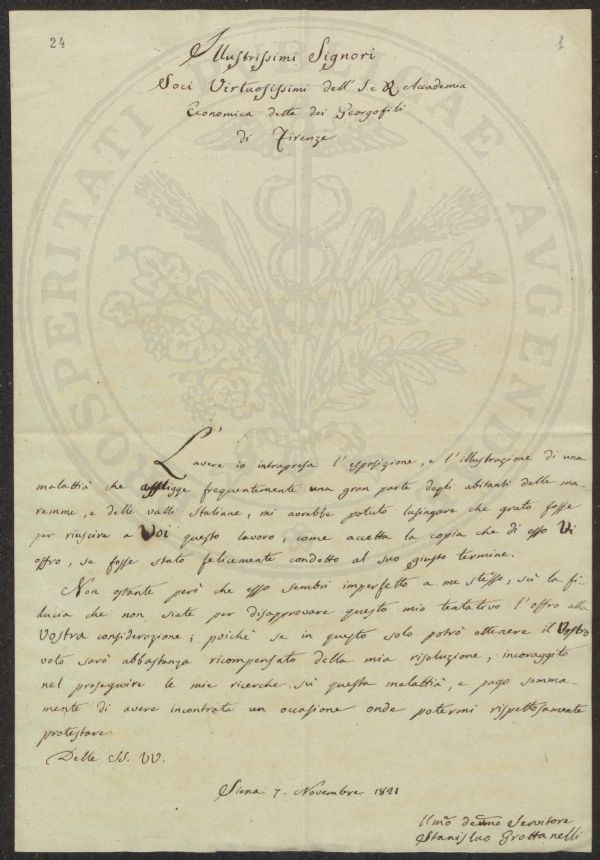 24 1
Illustrissimi Signori
Soci Virtuosissimi dell' I. e R. Accademia
Economica detta dei Georgofili
di Firenze
PROSPERITATI PUBLICAE AVGENDAE
L'avere io intrapresa l'esposizione, e l'illustrazione di una
malattia che affligge frequentemente una gran parte degli abitanti delle ma-
remme, e delle valli Italiane, mi avrebbe potuto lusingare che grato fosse
per riuscire a Voi questo lavoro, come accetta la copia che di esso Vi
offro, se fosse stato felicemente condotto al suo giusto termine.
Non ostante però che esso sembri imperfetto a me stesso, sù la fi-
ducia che non siate per disapprovare questo mio tentativo l'offro alla
Vostra considerazione; poichè se in questo solo potrò ottenere il Vostro
voto sarò abbastanza ricompensato della mia risoluzione, incoraggito
nel proseguire le mie ricerche sù questa malattia, e pago somma-
mente di avere incontrata un occasione onde potermi rispettosamente
protestare
Delle SS. VV.
Siena 7. Novembre 1821
Umo Servitore
Stanislao Grottanelli